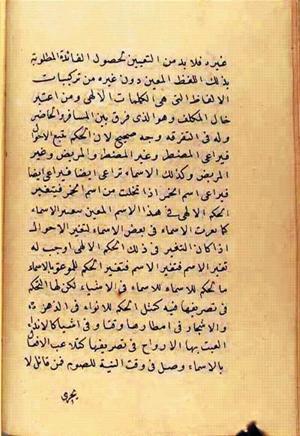 غيره فلا بد من التعيين لحصول الفائدة المطلوبة
بذلك اللفظ المعين دون غيره من تركيبات
الالفاظ التى هى الكلمات الالهى ومن اعتبر
حال المكلف وهو الذى فرق بين المسافر والحاضر
وله فى التفرقه وجه صحيح لان الحكم يتبع الاحوال
فيراعى المضطر وغير المضطر والمريض وغير
المريض وكذلك الاسماء تراعى ايضا فيراعى ايضا
فيراعى اسم الخمر اذا تخللت من اسم الخمر فيتغير
الحكم الالهى فى هذا الاسم المعين الاسماء
كما تغيرت الاسماء فى بعض الاسماء لتغير الاحوال
اذا كان التغير فى ذلك الحكم الالهى اوجب له
تغير الاسم فتغير الاسم فتغير الحكم بالاسماء
ما الحكم للاسماء للاسماء فى الاشياء لكن لها الحكم
فى تصريفها فيه كمثل الحكم للانواء فى الذهن
والاشجار فى امطارها
بها الارواح فى تصريفها كتلاعب الافعال
بالاسماء وصل فى وقت النية للصوم فمن قائل لا
يجزى